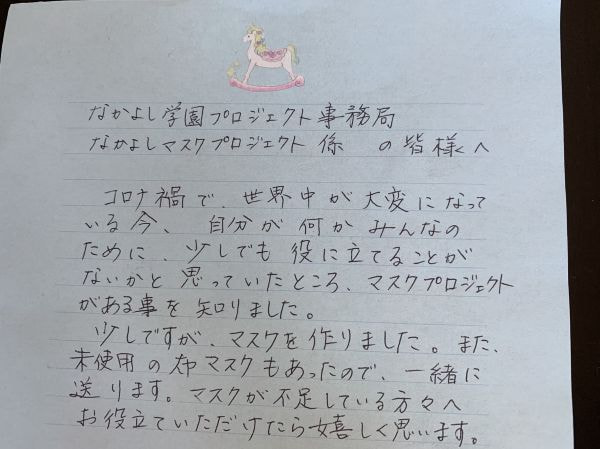 なかよし学園プロジェクト事務局
なかよしマスクプロジェクト係 の皆様へ
コロナ禍で、世界中が大変になって
いる今、自分が何かみんなの
ために、少しでも役に立てることが
ないかと思っていたところ、マスクプロジェクト
がある事を知りました。
少しですが、マスクを作りました。また、
未使用の布マスクもあったので、一緒に
送ります。マスクが不足している方々へ
お役立ていただけたら嬉しく思います。